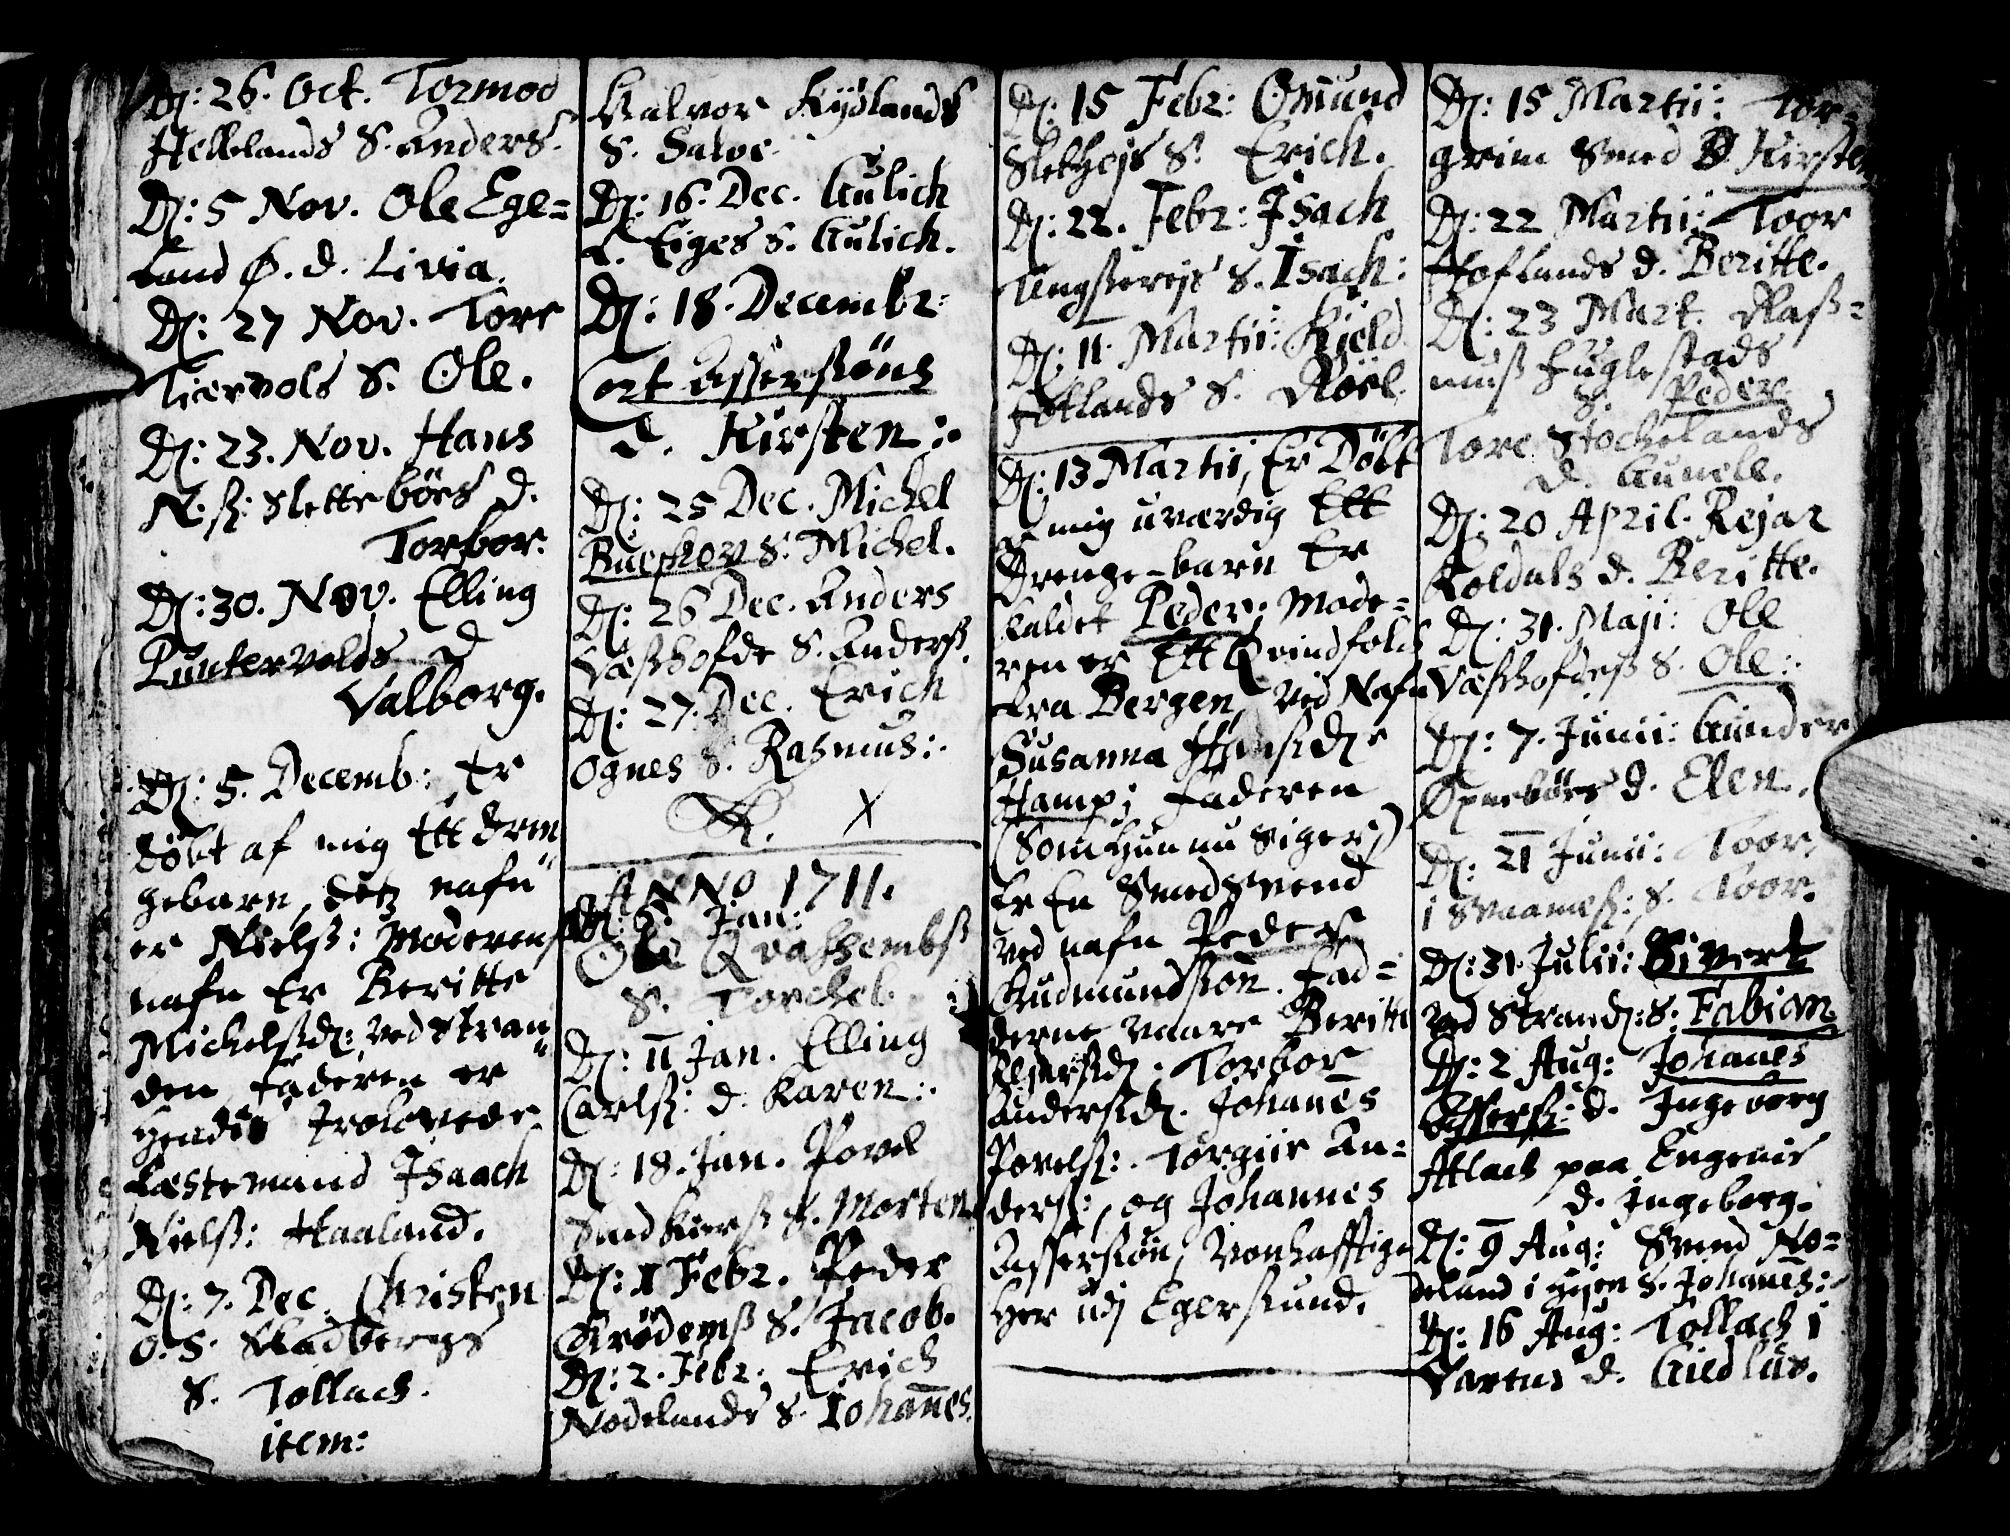 Dj: 26. Oct. Tormod
Hellelands S. Anders.
Dj: 5 Nov. Ole Ege=
land Ø. d. Livia.
Dj: 27 Nov. Tore
Tiærvols S. Ole.
Dj: 23. Nov. Hans
N. ß: Slettebøes d.
Torbor.
Dj: 30. Nov. Elling
Puntervolds d
Valborg.
Dj: 5. Decemb: Er
döbt af mig Ett dren
gebarn, detz nafn
er Nielß: Moderens
nafn Er Beritte
Michelsdj: ved Stran
den faderen er
hendes trolovede
fæstemand Isaach
Nielß: Haaland.
Dj: 7. Dec. Christen
O. S. Skadbergs
S. Tollach.
item:
Halvor Kydlands
S. Salve.
Dj: 16. Dec. Gulich
L. Eiges S. Gulich.
Dj: 18. Decembr:
Cort Assersföns
d. Kirsten:.
Dj: 25 Dec. Michel
Bueskov S. Michel.
Dj: 26 Dec. Anders
Væshofde S. Anderß.
Dj: 27. Dec. Erich
Ognes S. Rasmus:.
X
ANNO 1711.
Dj: 6. Jan:
Ole Qvaßhembß
S. Torchel.
Dj: 11 Jan. Elling
Carlß: d. Karen:.
Dj: 18. Jan. Povel
S. Morten
Dj: 1 Febr. Peder
Grödemß S. Jacob.
Dj: 2. Febr. Erich
Nodelands S. Iohanes.
Dj. 15 Febr: Omund
Slethejs S. Erich.
Dj: 22. Febr: Isach
S. Isach:
Dj: 11. Martii: Kield
Fotlands S. Roel.
Dj: 13 Martii, Er Döbt
af mig uværdig Ett
Drenge-barn Er
kaldet Peder; Mode=
ren er Ett Qvindfolch
fra Bergen, ved Nafn
Susanna Hansdj
Hamp; Faderen
(Som hun nu siger)
Er En Smedsvend
ved nafn Peder
Gudmundssön. Fad=
derne vaare Beritte
Rejersdj. Torbor
Andersdj. Johanes
Povelß:. Torgiir An=
derß:, og Johannes
Asserssön, Vonhafftige
her udj Egersund.
Dj: 15 Martii: Tor=
grim Smed D. Kirsten
Dj: 22 Martii: Toor
Hoflands d. Beritte.
Dj: 23 Mart. Raß=
muß Fuglestads
S. Peder
Tore Stochelands
d. Gunell.
Dj: 20 April. Rejar
Koldals d. Beritte.
Dj: 31. Maji: Ole
Væshofdeß S. Ole:.
Dj: 7. Junii: Gunder
Øpnebøes d. Elen.
Dj: 21 Junii: Toor
i S. Toor.
Dj: 31 Julii: Sivert
ved Strandj: S: Fabian
Dj: 2 Aug: Johanes
Asserß: d. Ingeborg
Atlach paa Engenis
d. Ingeborg.
Dj: 9 Aug: Svend No=
deland i hejen S. Johanes:
Dj: 16 Aug: Tollach i
Varens d. Giedlur.